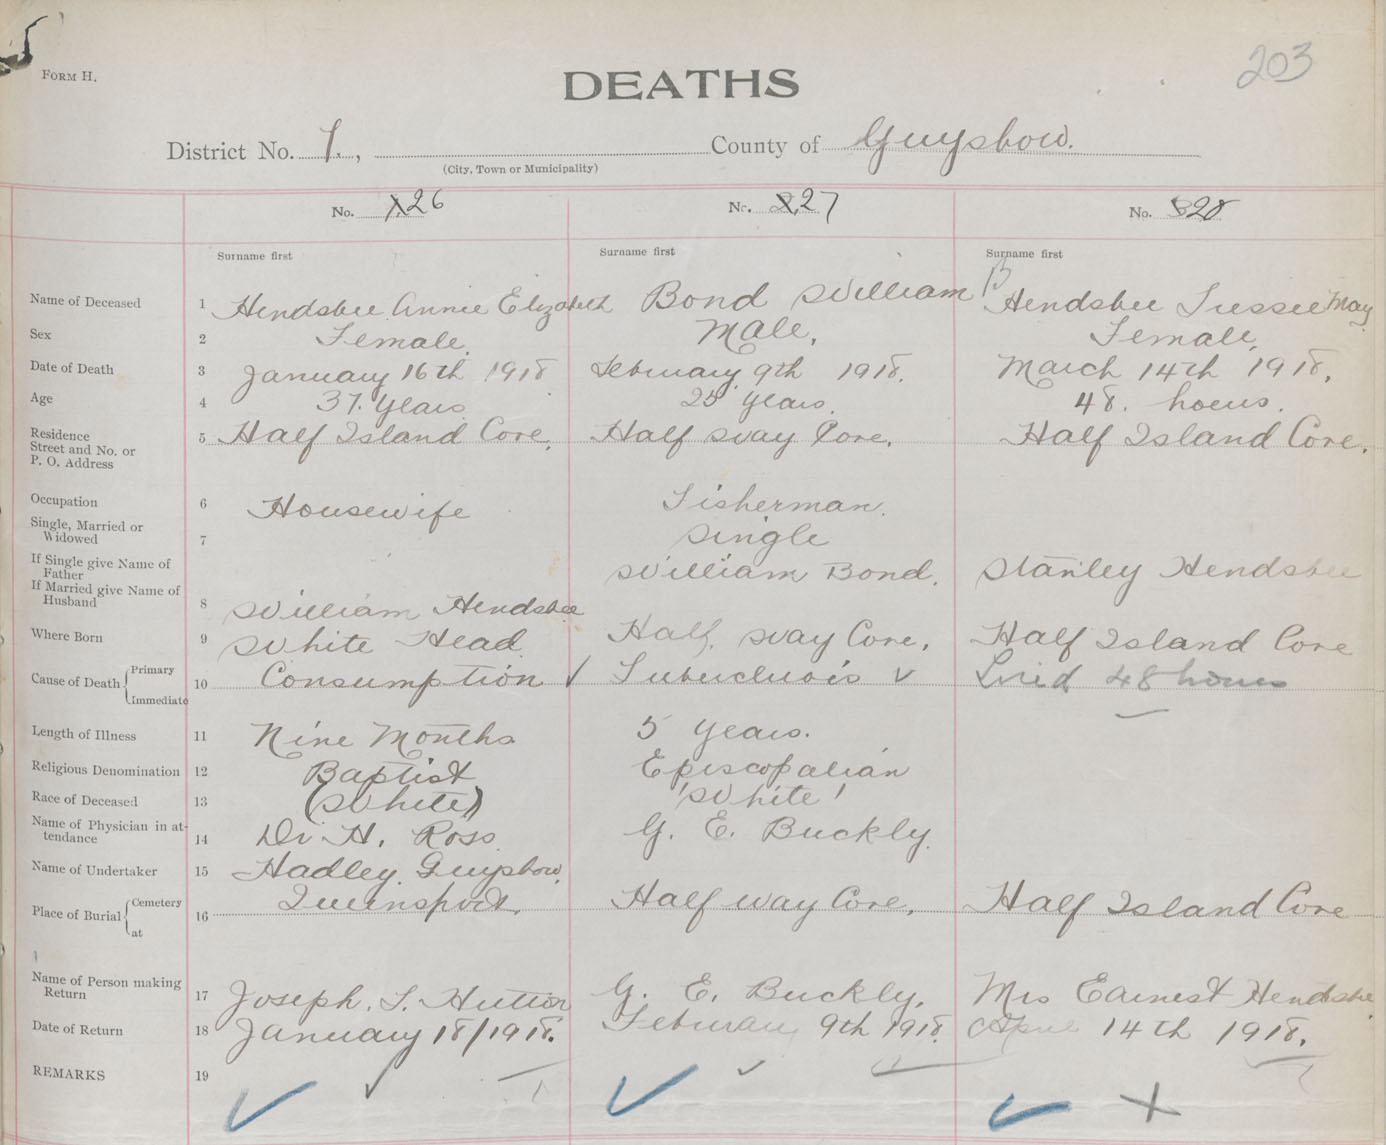 203
FORM H.
DEATHS
District No. 7., County of Guysboro.
(City, Town or Municipality)
No. 1.26 No. 2.27 No. 3 28
Surname first Surname first Surname first
Name of Deceased 1 Hendsbee Annie Elizabeth Bond William B Hendsbee Tressie May
Sex 2 Female. Male. Female.
Date of Death 3 January 16th 1918 February 9th 1918. March 14th 1918.
Age 4 37. years 25 years. 48. hours.
Residence
Street and No. or
P. O. Address
5 Half Island Cove. Half Way Cove. Half Island Cove.
Occupation 6 Housewife Fisherman.
Single, Married or
Widowed
7 Single
If Single give Name of
Father
William Bond. Stanley Hendsbee
If Married give Name of
Husband
8 William Hendsbee
Where Born 9 White Head Half Way Cove. Half Island Cove
Cause of Death Primary
Immediate
10 Consumption ✓ Tuberclusis ✓ Lived 48 hours
Length of Illness 11 Nine Months 5 years.
Religious Denomination 12 Baptist Episcopalian
Race of Deceased 13 (White) 'White'
Name of Physician in at-
tendance
14 Dr. H. Ross. G. E. Buckly.
Name of Undertaker 15 Hadley. Guysboro.
Place of Burial Cemetery
at
16 Queensport. Half way Cove. Half Island Cove
Name of Person making
Return
17 Joseph. S. Hutton G. E. Buckly. Mrs Earnest Hendsbee.
Date of Return 18 January 18/1918. February 9th 1918. April 14th 1918.
REMARKS 19